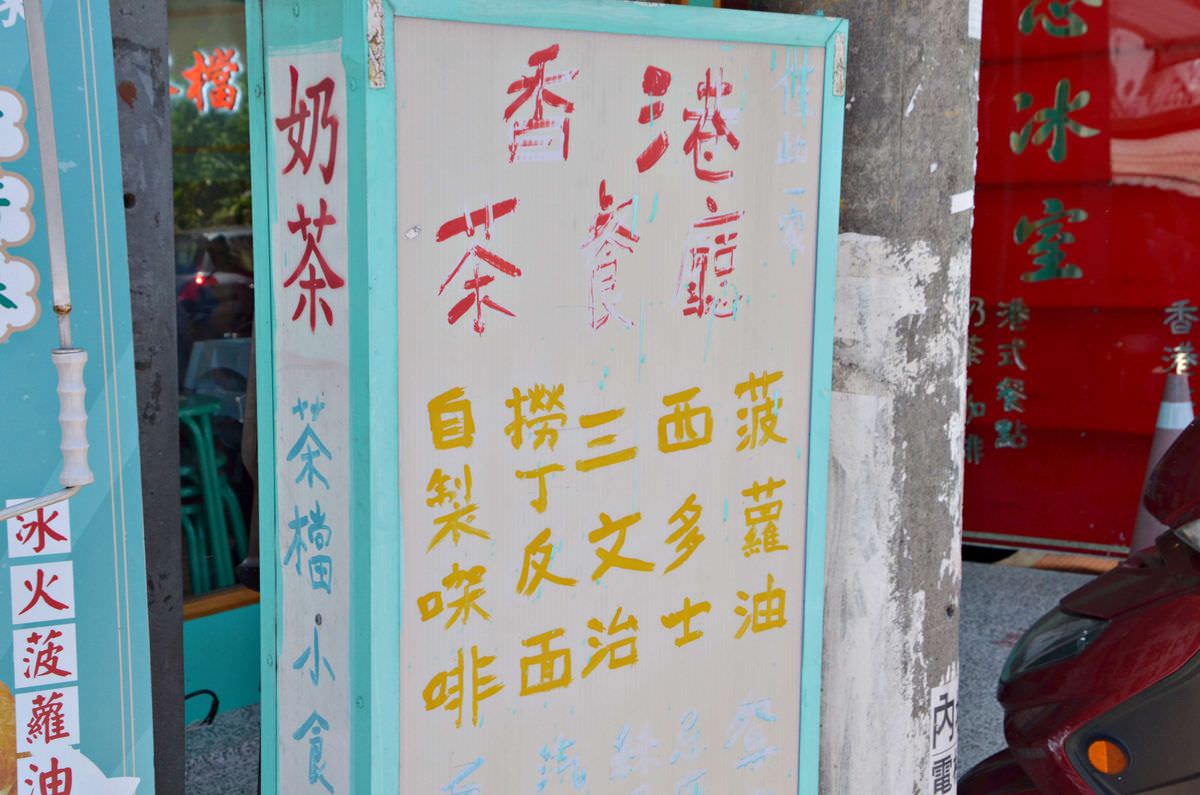 檔
冰火菠蘿油
奶茶
茶檔小食
香港
茶餐廳
菠蘿油
西多士
三文治
撈丁反面
自製㗎啡
一家
冰室
香港
港式餐點
內
電